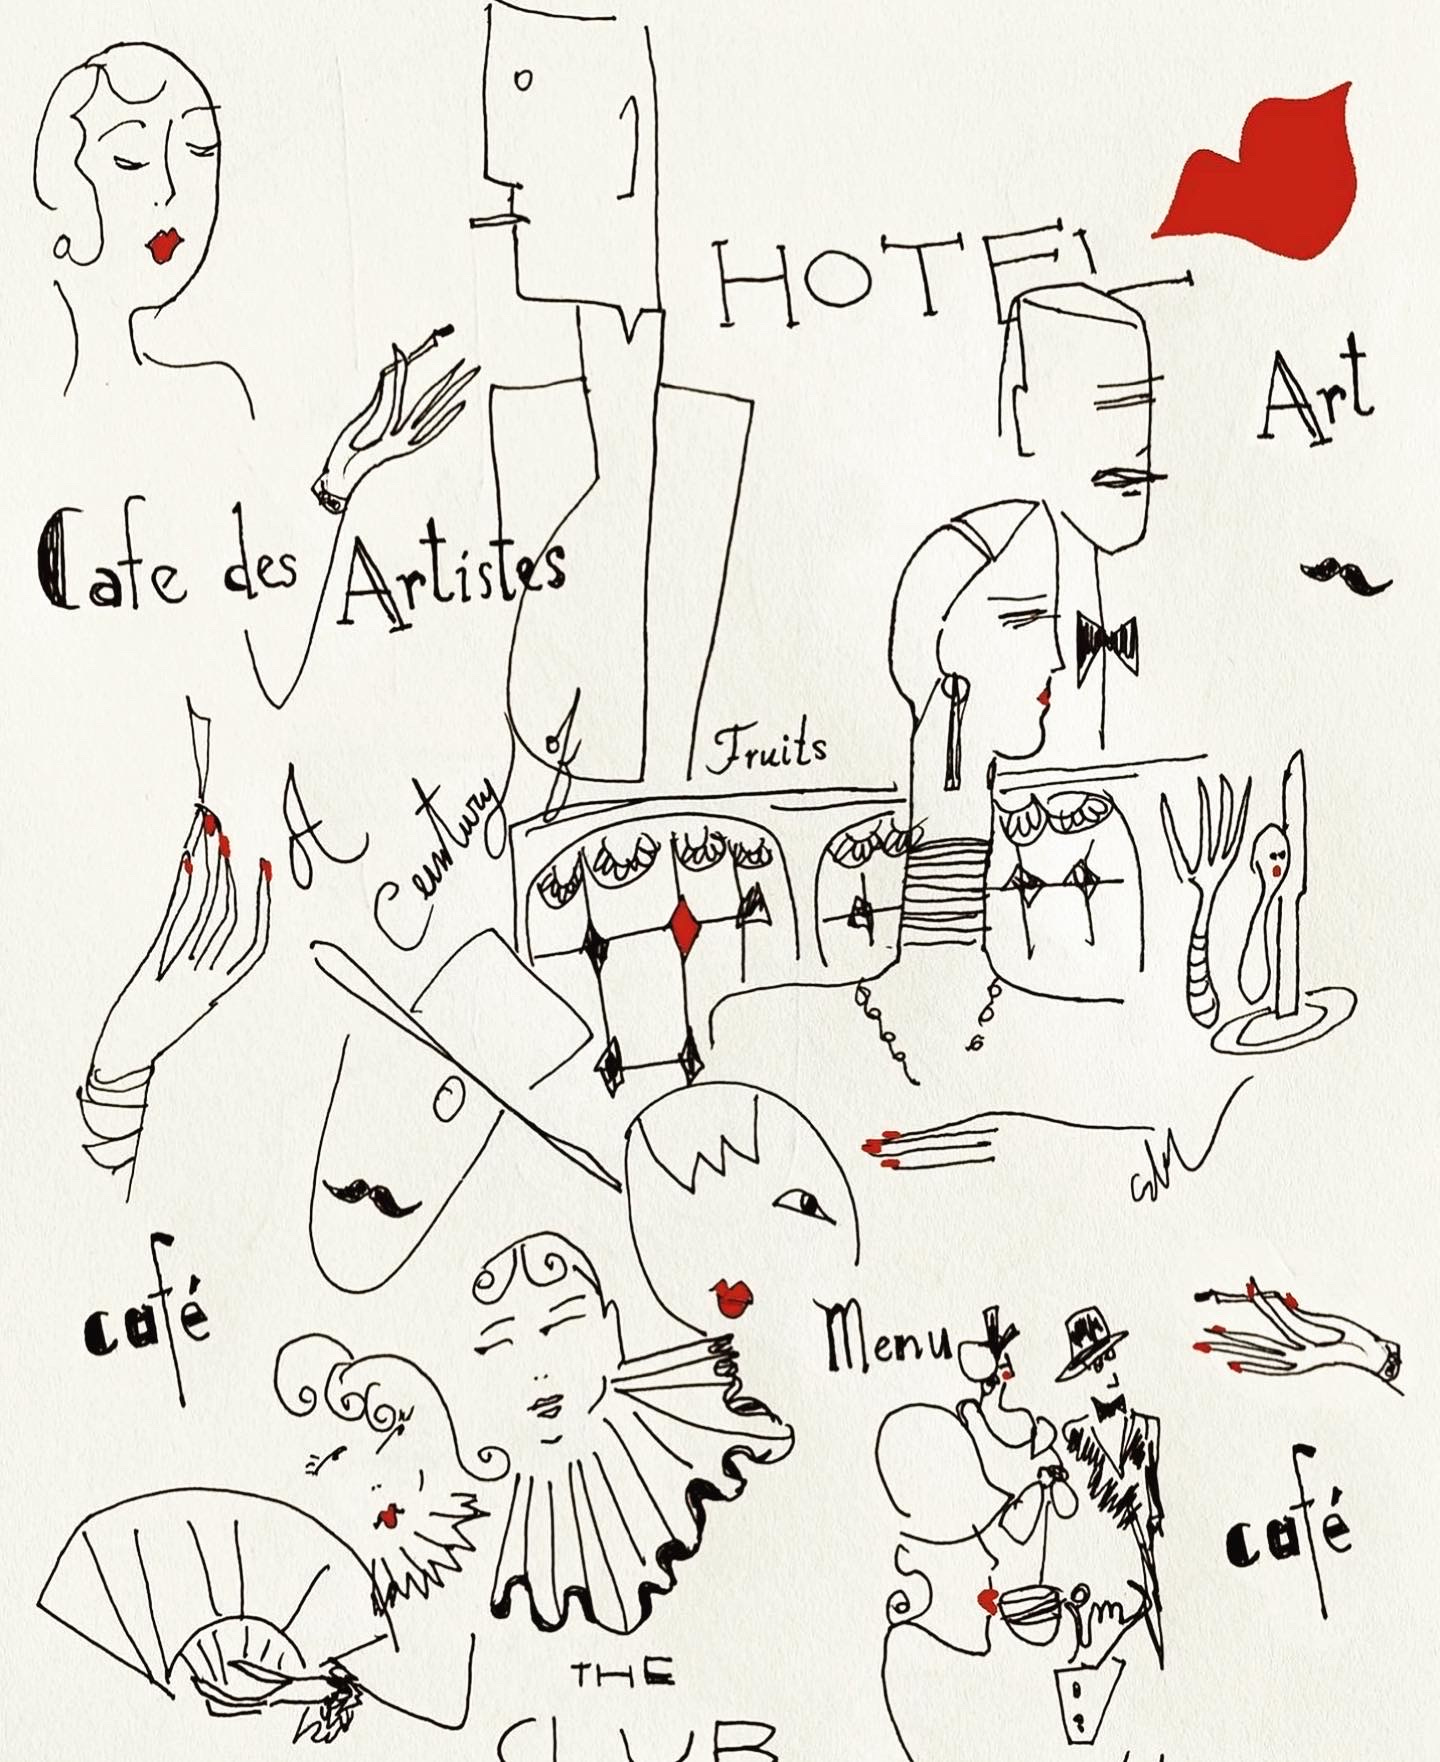 HOTEL
Art
Cafe des Artistes
Fruits
A
Century
café
Menu
café
THE
CLUB